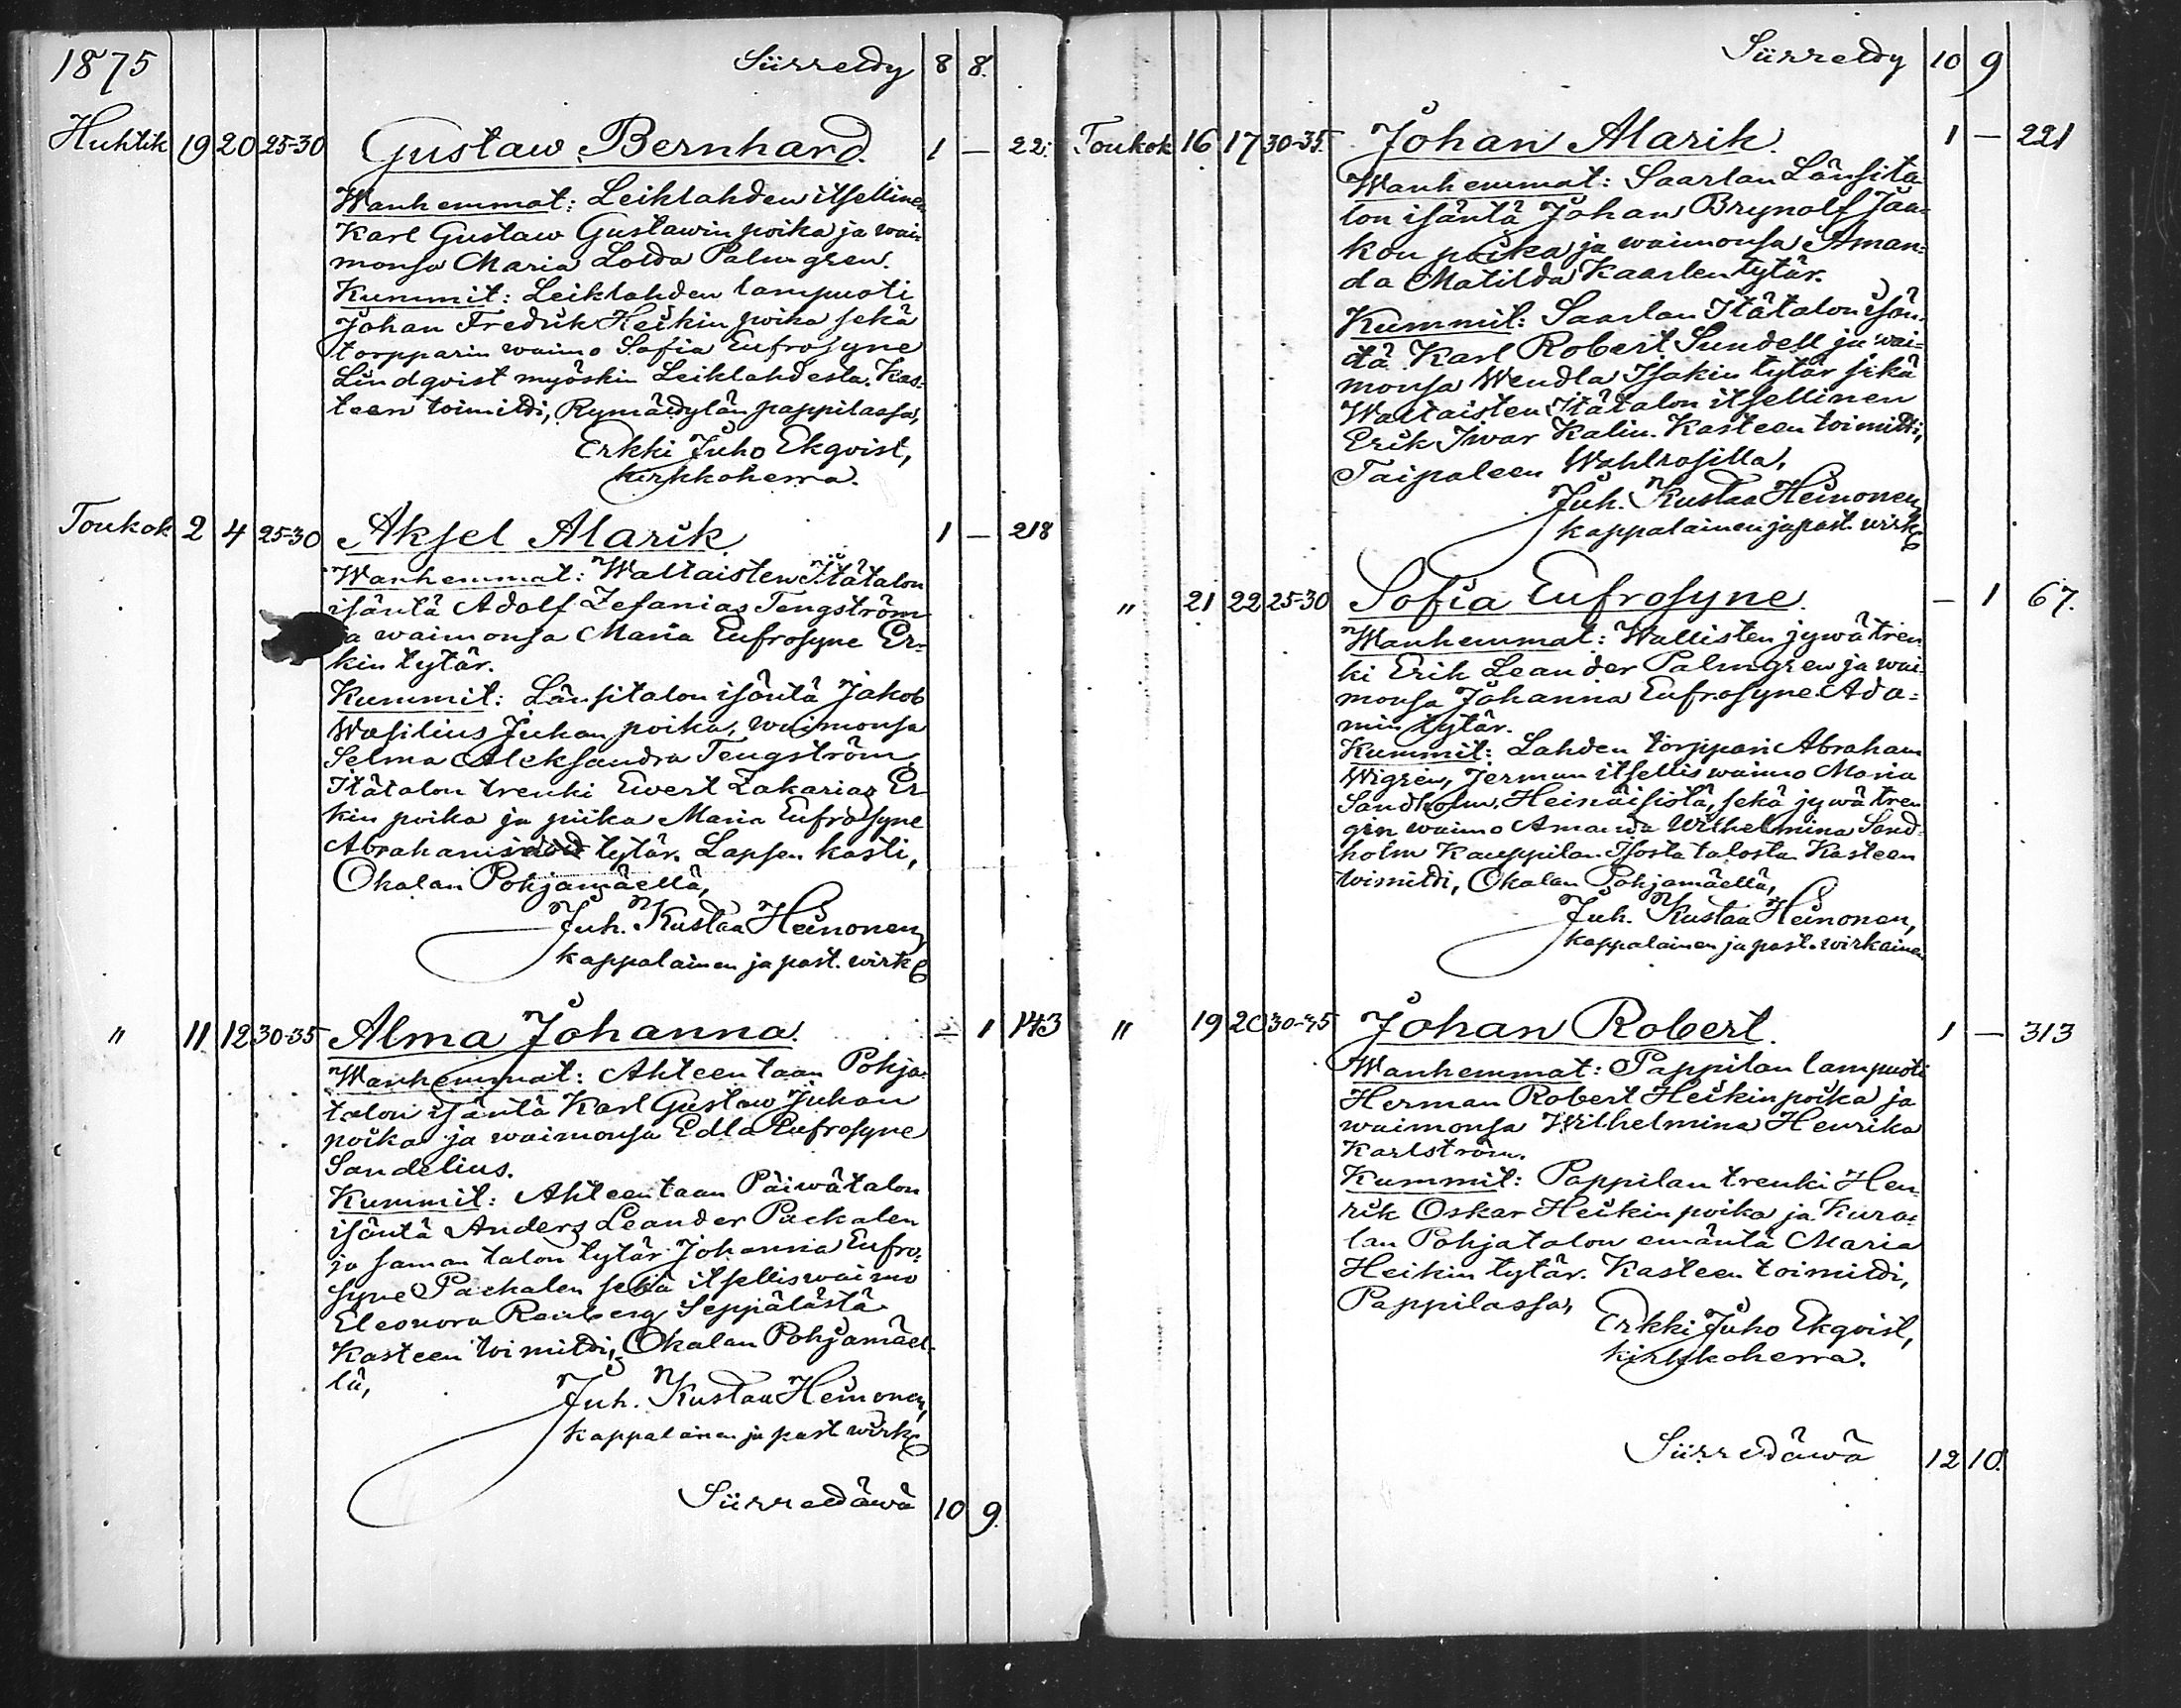 1875 Siirretty 8 8.
Huhtik 19 20 25-30 Gustaw Bernhard. 1 — 22
Wanhemmat: Leiklahden itsellinen
Karl Gustaw Gustawin poika ja wai-
monsa Maria Lovisa Palmgren.
Kummit: Leiklahden lampuoti
Johan Fredrik Heikin poika sekä
torpparin waimo Sofia Eufrosyne
Lindqvist myöskin Leiklahdesta. Kas-
teen toimitti, Rymättylän pappilassa,
Erkki Juho Ekqvist,
kirkkoherra.
Toukok 2 4 25-30 Aksel Alarik. 1 — 218
Wanhemmat: Waltaisten Itätalon
isäntä Adolf Zefanias Tengström
ja waimonsa Maria Eufrosyne Er-
kin tytär.
Kummit: Länsitalon isäntä Jakob
Wasilius Juhan poika, waimonsa
Selma Aleksandra Tengström,
Itätalon trenki Ewert Zakarias Er-
kin poika ja piika Maria Eufrosyne
Abrahamin tytär. Lapsen kasti,
Okalan Pohjamäellä,
Juh. Kustaa Heinonen,
kappalainen ja past. wirk
" 11 12 30-35 Alma Johanna. — 1 143
Wanhemmat: Ahteentaan Pohja-
talon isäntä Karl Gustaw Juhan
poika ja waimonsa Edla Eufrosyne
Sandelius.
Kummit: Ahteentaan Päiwätalon
isäntä Anders Leander Packalen
ja saman talon tytär Johanna Eufro-
syne Packalen sekä itsellis waimo
Eleonora Renberg Seppälästä
Kasteen toimitti, Okalan Pohjamäel-
lä,
Juh. Kustaa Heinonen,
kappalainen ja past wirk
Siirrettäwä 10 9.
Siirretty 10 9
Toukok 16 17 30-35. Johan Alarik. 1 — 221
Wanhemmat: Saarlan Länsita-
lon isäntä Johan Brynolf Jaa-
kon poika ja waimonsa Aman-
da Matilda Kaarlen tytär.
Kummit: Saarlan Itätalon isän-
tä Karl Robert Sundell ja wai-
monsa Wendla Isakin tytär sekä
Waltaisten Itätalon itsellinen
Erik Iwar Kalin. Kasteen toimitti,
Taipaleen Wahlrosilla,
Juh. Kustaa Heinonen,
kappalainen ja past. wirk
" 21 22 25-30 Sofia Eufrosyne. — 1 67.
Wanhemmat: Wallisten jywätren-
ki Erik Leander Palmgren ja wai-
monsa Johanna Eufrosyne Ada-
min tytär.
Kummit: Lahden torppari Abraham
Wigren, Jerman itsellis waimo Maria
Sandholm, Heinäisistä, sekä jywä tren-
gin waimo Amanda Wilhelmina Sand-
holm Kauppilan Isosta talosta Kasteen
toimitti, Okalan Pohjamäellä,
Juh. Kustaa Heinonen,
kappalainen ja past. wirkainen
" 19 20 30-35 Johan Robert. 1 — 313
Wanhemmat: Pappilan lampuoti
Herman Robert Heikin poika ja
waimonsa Wilhelmina Henrika
Karlström.
Kummit: Pappilan trenki Hen-
rik Oskar Heikin poika ja Kura-
lan Pohjatalon emäntä Maria
Heikin tytär. Kasteen toimitti,
Pappilassa,
Erkki Juho Ekqvist,
kirkkoherra.
Siirrettäwä 12 10.